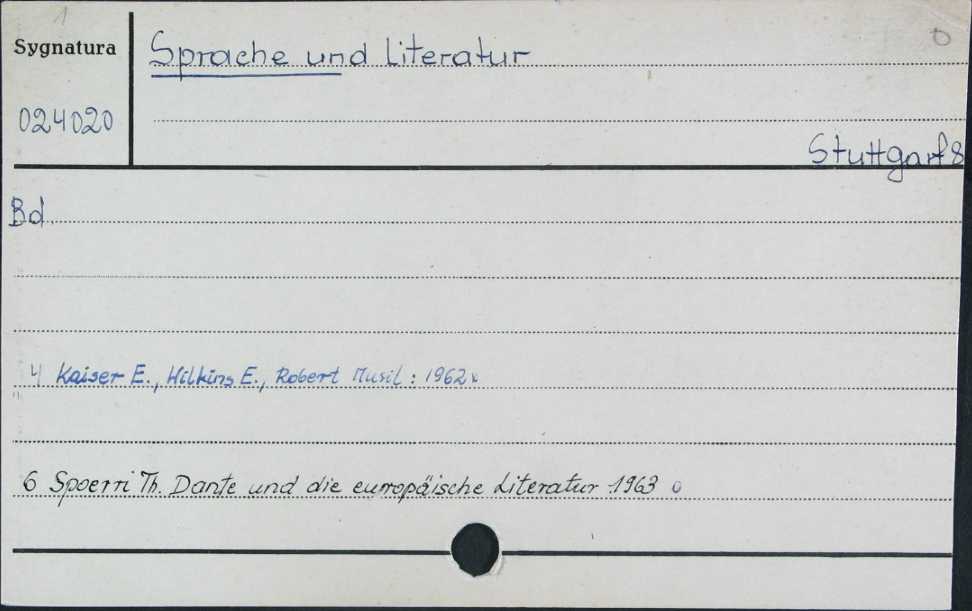 1
Sygnatura
Sprache und Literatur
024020
Stuttgart 8
Bd.
4 Kaiser E., Wilkins E., Robert Musil : 1962
6 Spoerri Th. Dante und die europäische Literatur 1963 o